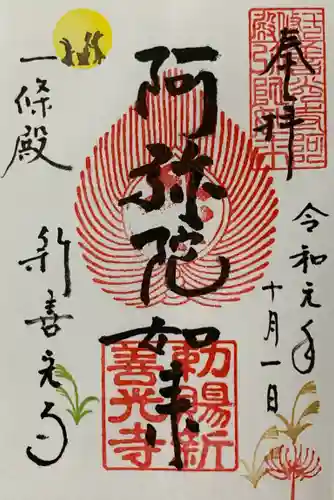 奉拝
令和元年
十月一日
阿弥陀如来
勅賜新
善光寺
一條殿
新善光寺